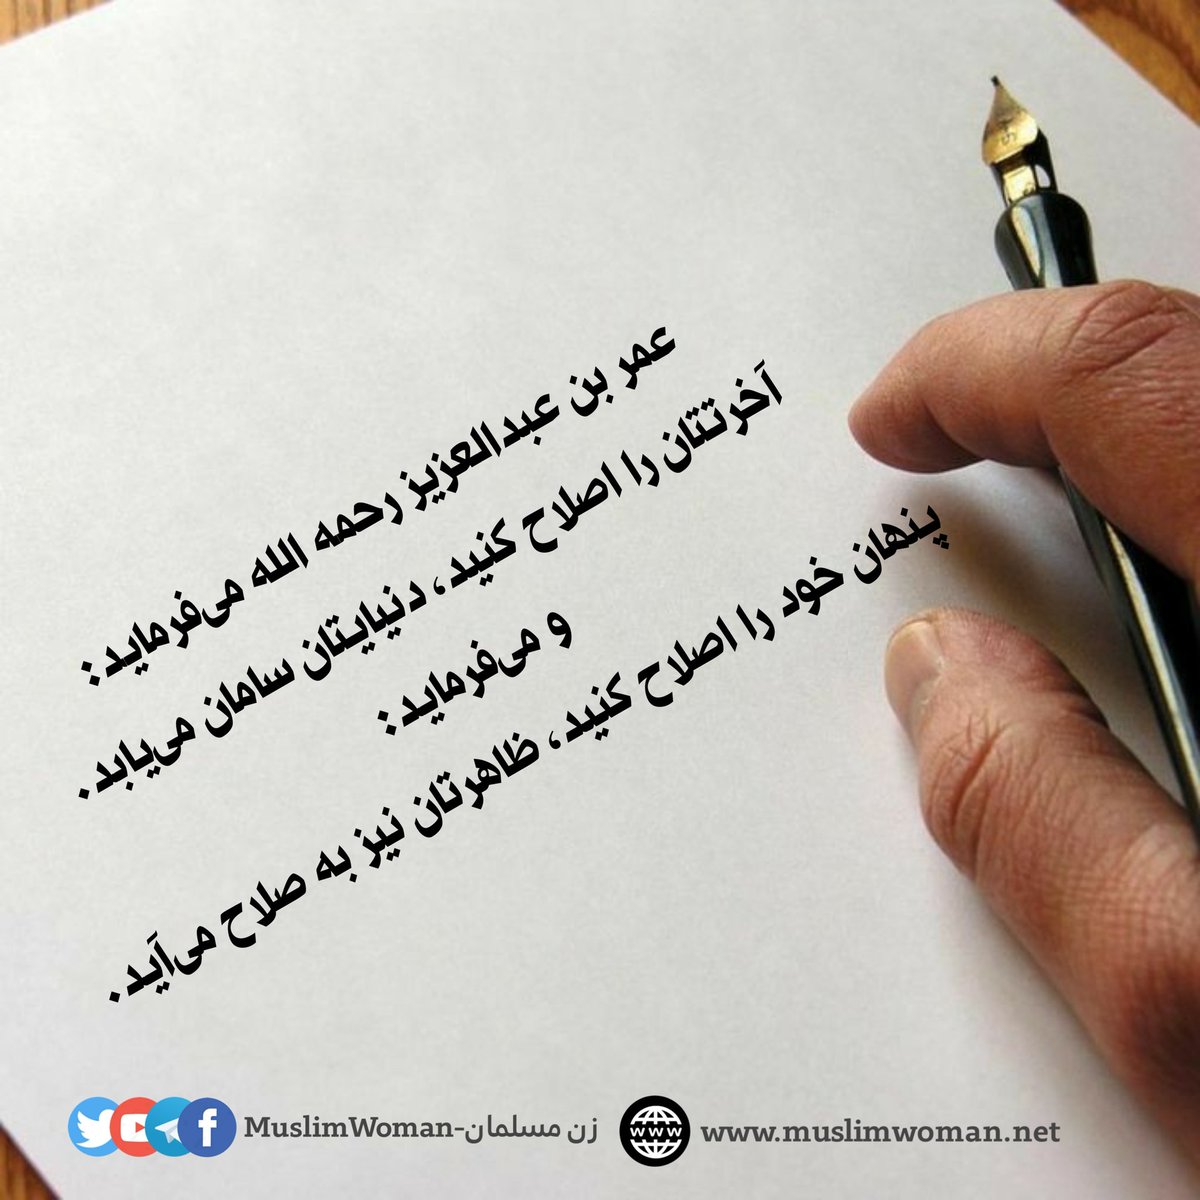 عمر بن عبدالعزیز رحمه الله می‌فرماید:
آخرتتان را اصلاح کنید، دنیایتان سامان می‌یابد.
و می‌فرماید:
پنهان خود را اصلاح کنید، ظاهرتان نیز به صلاح می‌آید.
MuslimWoman-زن مسلمان
www.muslimwoman.net